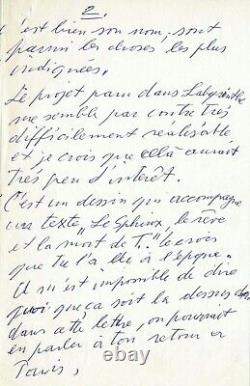 2.
c'est bien son nom, sont
parmi les choses les plus
indignées.
Le projet paru dans Labyrinthe
me semble par contre très
difficilement réalisable
et je crois que cela aurait
très peu d'intérêt.
C'est un dessin qui accompagne
un texte "Le Sphinx, le rêve
et la mort de T." le
que tu l'a à l'époque.
Il m'est impossible de dire
quoi que ça soit là dessus
dans cette lettre, on pourrait
en parler à ton retour à
Paris,